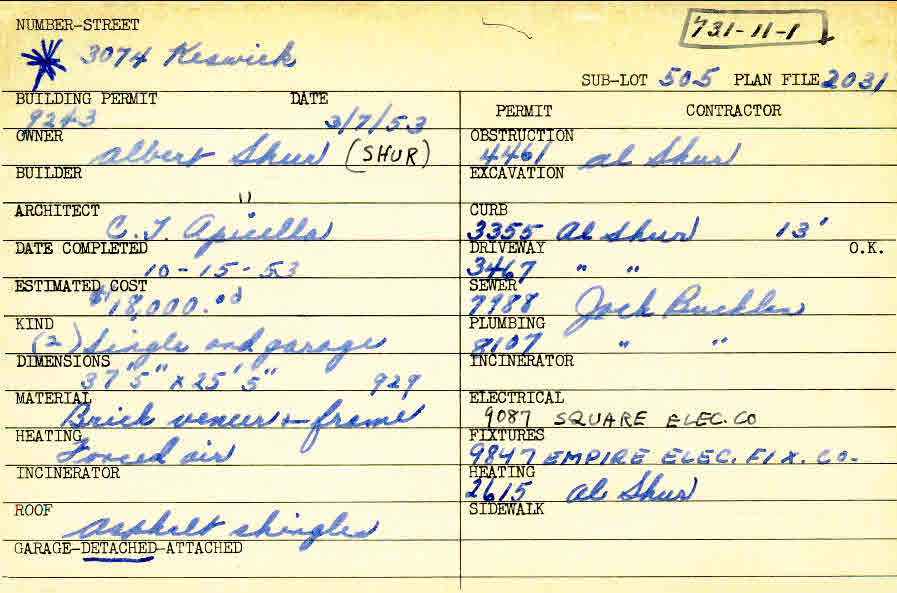 NUMBER-STREET
731-11-1
3074 Keswick
SUB-LOT 505 PLAN FILE 2031
BUILDING PERMIT DATE
9243 3/7/53
OWNER
Albert Shur (SHUR)
BUILDER
"
ARCHITECT
C. T. Apicella
DATE COMPLETED
10-15-53
ESTIMATED COST
$18,000.00
KIND
(2) Single and garage
DIMENSIONS
37'5" x 25'5" 929
MATERIAL
Brick veneer + frame
HEATING
Forced air
INCINERATOR
ROOF
Asphalt shingles
GARAGE-DETACHED-ATTACHED
PERMIT CONTRACTOR
OBSTRUCTION
4461 Al Shur
EXCAVATION
CURB
3355 Al Shur 13'
DRIVEWAY O.K.
3467 " "
SEWER
7988 Jack Bucklan
PLUMBING
8107 " "
INCINERATOR
ELECTRICAL
9087 SQUARE ELEC. CO
FIXTURES
9847 EMPIRE ELEC. FIX. CO.
HEATING
2615 Al Shur
SIDEWALK